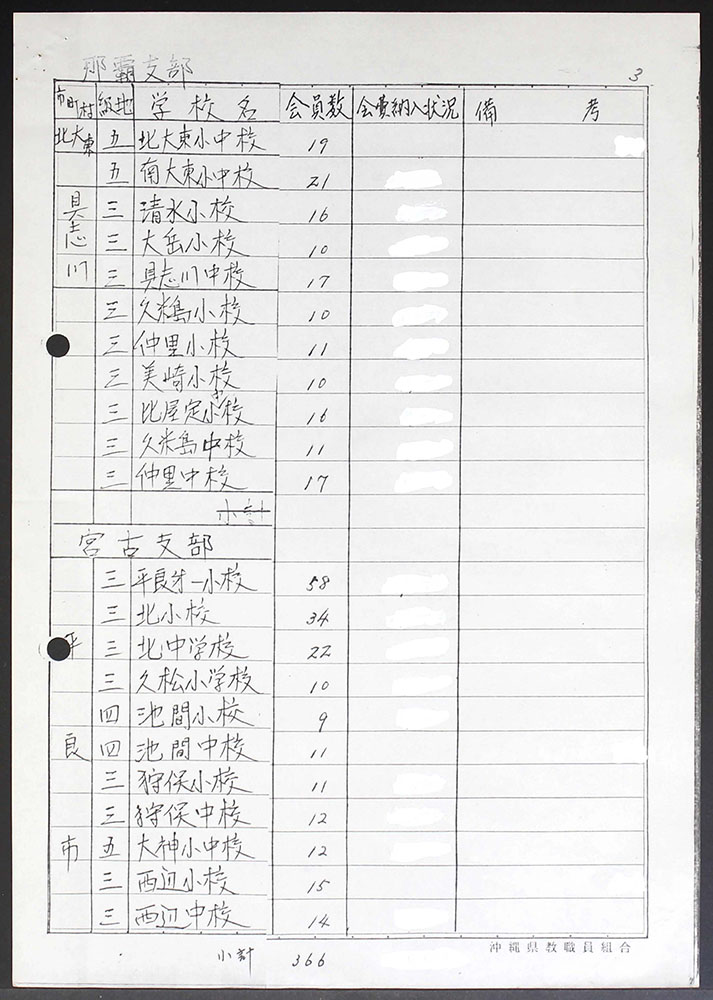 那覇支部
3
市町村 級地 学校名 会員数 会費納入状況 備考
北大東 五 北大東小中校 19
五 南大東小中校 21
具志川 三 清水小校 16
三 大岳小校 10
三 具志川中校 17
三 久米島小校 10
三 仲里小校 11
三 美崎小校 10
三 比屋定小中校 16
三 久米島中校 11
三 仲里中校 17
小計
宮古支部
三 平良才一小校 58
三 北小校 34
平良市 三 北中学校 22
三 久松小学校 10
四 池間小校 9
四 池間中校 11
三 狩俣小校 11
三 狩俣中校 12
五 大神小中校 12
三 西辺小校 15
三 西辺中校 14
沖縄県教職員組合
小計 366